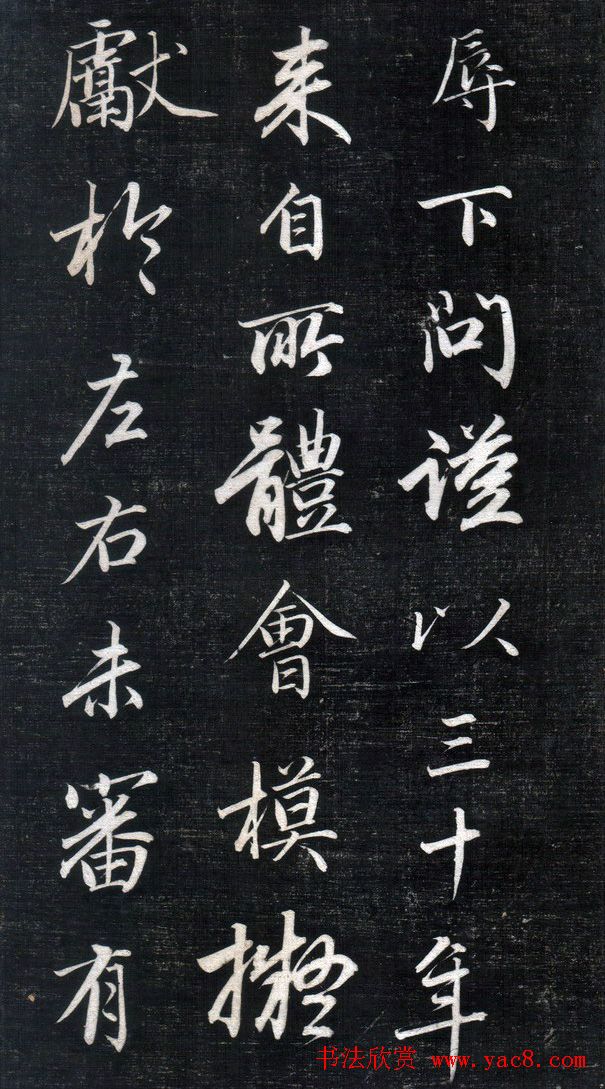 辱下問謹以三十年
来自所體會模擬
獻於左右未審有
书法欣赏 www.yac8.com